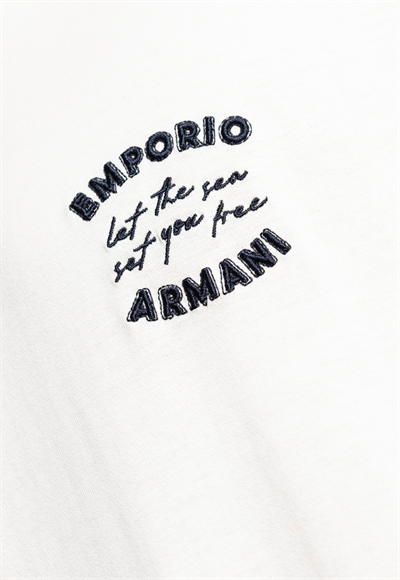 EMPORIO
let the sea
set you free
ARMANI